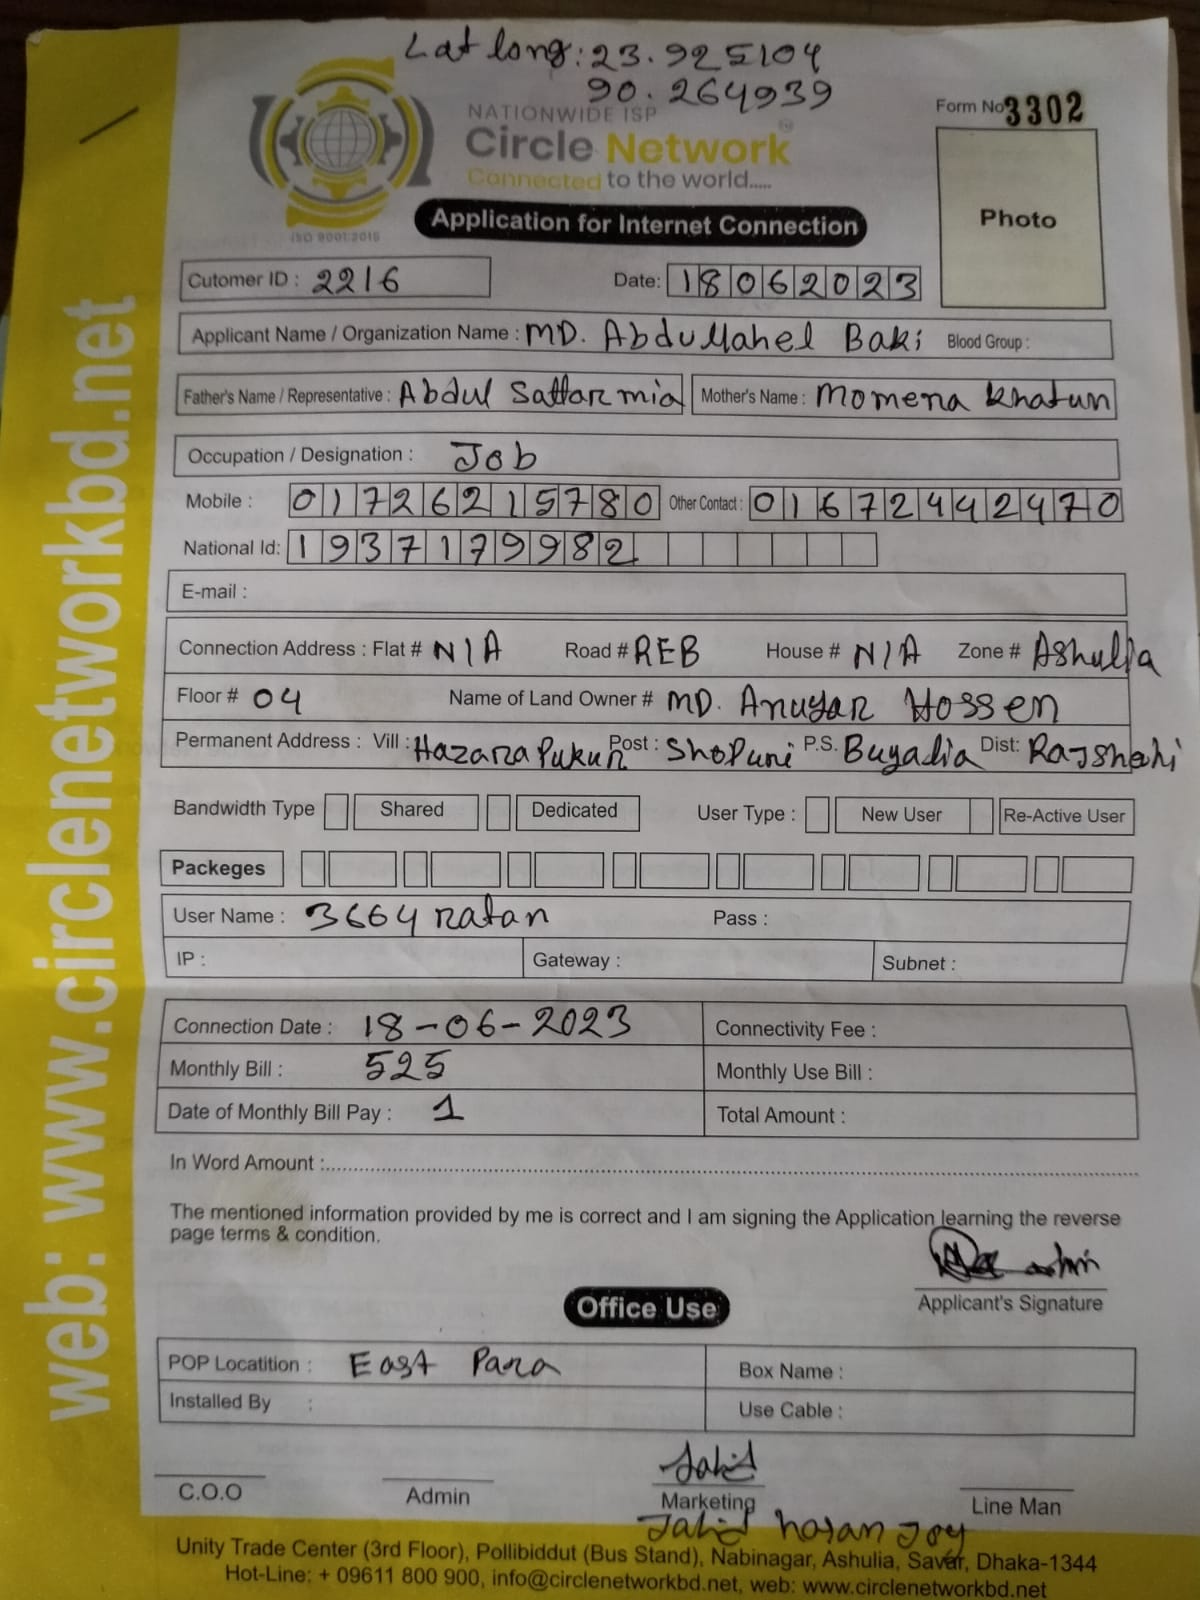 Lat long: 23.925104
90.264939
NATIONWIDE ISP
Form No 3302
Circle Network
Connected to the world.....
ISO 9001:2015
Photo
Application for Internet Connection
Cutomer ID : 2216 Date: 18062023
Applicant Name / Organization Name : MD. Abdullahel Baki Blood Group :
Father's Name / Representative : Abdul Sattar mia Mother's Name : Momena Khatun
Occupation / Designation : Job
Mobile : 01726215780 Other Contact : 01672442470
National Id: 1937179982
E-mail :
Connection Address : Flat # N/A Road # REB House # N/A Zone # Ashulia
Floor # 04 Name of Land Owner # MD. Anuyar Hossen
Permanent Address : Vill : Hazarapukur Post : Shopuni P.S. Buyadia Dist: Rajshahi
Bandwidth Type Shared Dedicated User Type : New User Re-Active User
Packeges
User Name : 3664ratan Pass :
IP : Gateway : Subnet :
Connection Date : 18-06-2023 Connectivity Fee :
Monthly Bill : 525 Monthly Use Bill :
Date of Monthly Bill Pay : 1 Total Amount :
In Word Amount :
The mentioned information provided by me is correct and I am signing the Application learning the reverse
page terms & condition.
Applicant's Signature
Office Use
POP Locatition : East Para Box Name :
Installed By : Use Cable :
Jahid
C.O.O Admin Marketing Line Man
Jahid hasan Joy
Unity Trade Center (3rd Floor), Pollibiddut (Bus Stand), Nabinagar, Ashulia, Savar, Dhaka-1344
Hot-Line: + 09611 800 900, info@circlenetworkbd.net, web: www.circlenetworkbd.net
web: www.circlenetworkbd.net